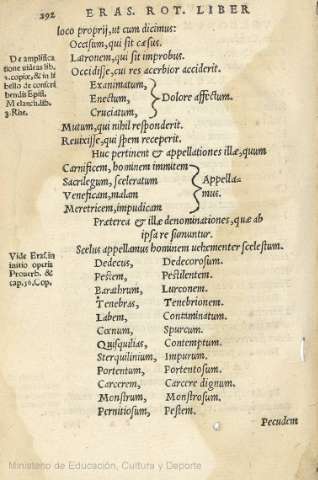 292 ERAS. ROT. LIBER
loco proprij, ut cum dicimus:
Occisum, qui sit cæsus.
Latronem, qui sit improbus.
Occidisse, cui res acerbior acciderit.
Exanimatum,
Enectum,
Cruciatum,
Dolore affectum.
Mutum, qui nihil responderit.
Reuixisse, qui spem receperit.
Huc pertinent & appellationes illæ, quum
Carnificem, hominem immitem
Sacrilegum, sceleratum
Veneficam, malam
Meretricem, impudicam
Appella-
mus.
Præterea & illæ denominationes, quæ ab
ipsa re sumuntur.
Scelus appellamus hominem uehementer scelestum.
Dedecus, Dedecorosum.
Pestem, Pestilentem.
Barathrum, Lurconem.
Tenebras, Tenebrionem.
Labem, Contaminatum.
Cœnum, Spurcum.
Quisquilias, Contemptum.
Sterquilinium, Impurum.
Portentum, Portentosum.
Carcerem, Carcere dignum.
Monstrum, Monstrosum.
Pernitiosum, Pestem.
Pecudem
De amplifica
tione uideas lib.
2. copiæ, & in li
bello de conscri
bendis Epist.
Melanch. lib.
3. Rhet.
Vide Eras. in
initio operis
Prouerb. &
cap. 16. Cop.
Ministerio de Educación, Cultura y Deporte